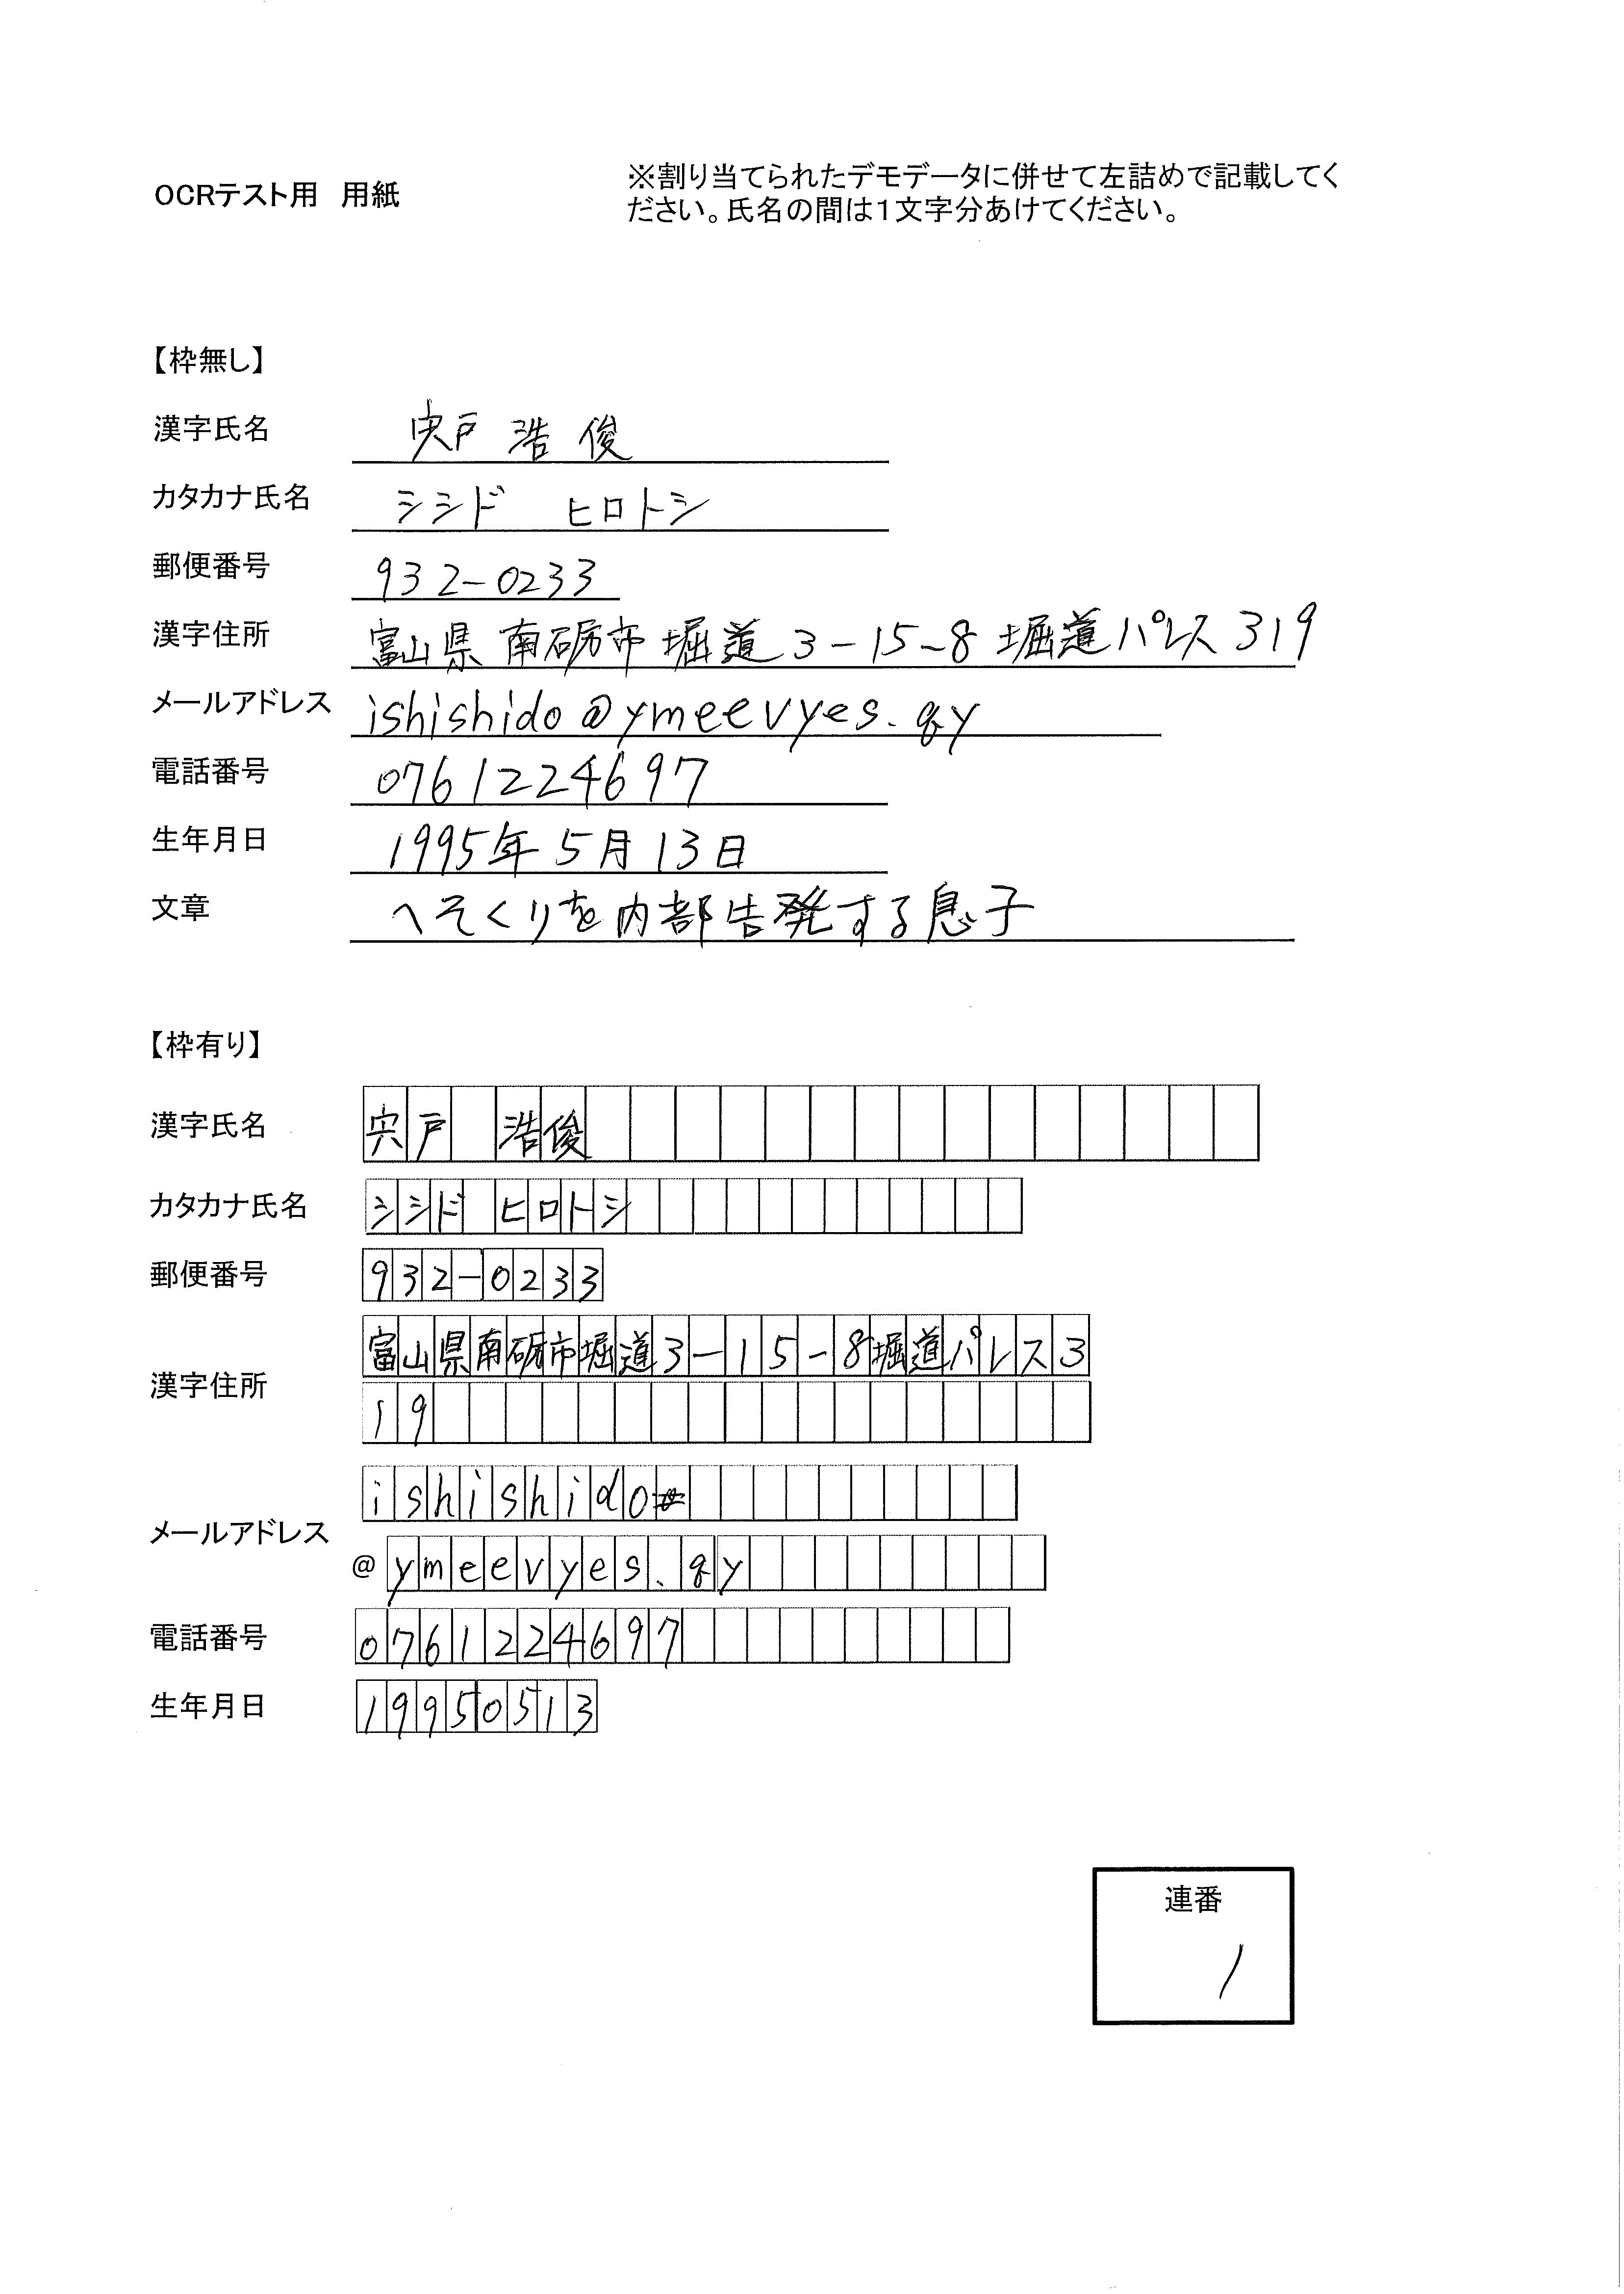 OCRテスト用 用紙
※割り当てられたデモデータに併せて左詰めで記載してく
ださい。氏名の間は1文字分あけてください。
【枠無し】
漢字氏名 宍戸 浩俊
カタカナ氏名 シシド ヒロトシ
郵便番号 932-0233
漢字住所 富山県南砺市堀道3-15-8 堀道パレス319
メールアドレス ishishido@ymeevyes.gy
電話番号 0761224697
生年月日 1995年5月13日
文章 へそくりを内部告発する息子
【枠有り】
漢字氏名 宍戸 浩俊
カタカナ氏名 シシド ヒロトシ
郵便番号 932-0233
漢字住所 富山県南砺市堀道3-15-8堀道パレス3
19
メールアドレス ishishido
@ymeevyes.gy
電話番号 0761224697
生年月日 19950513
連番
1